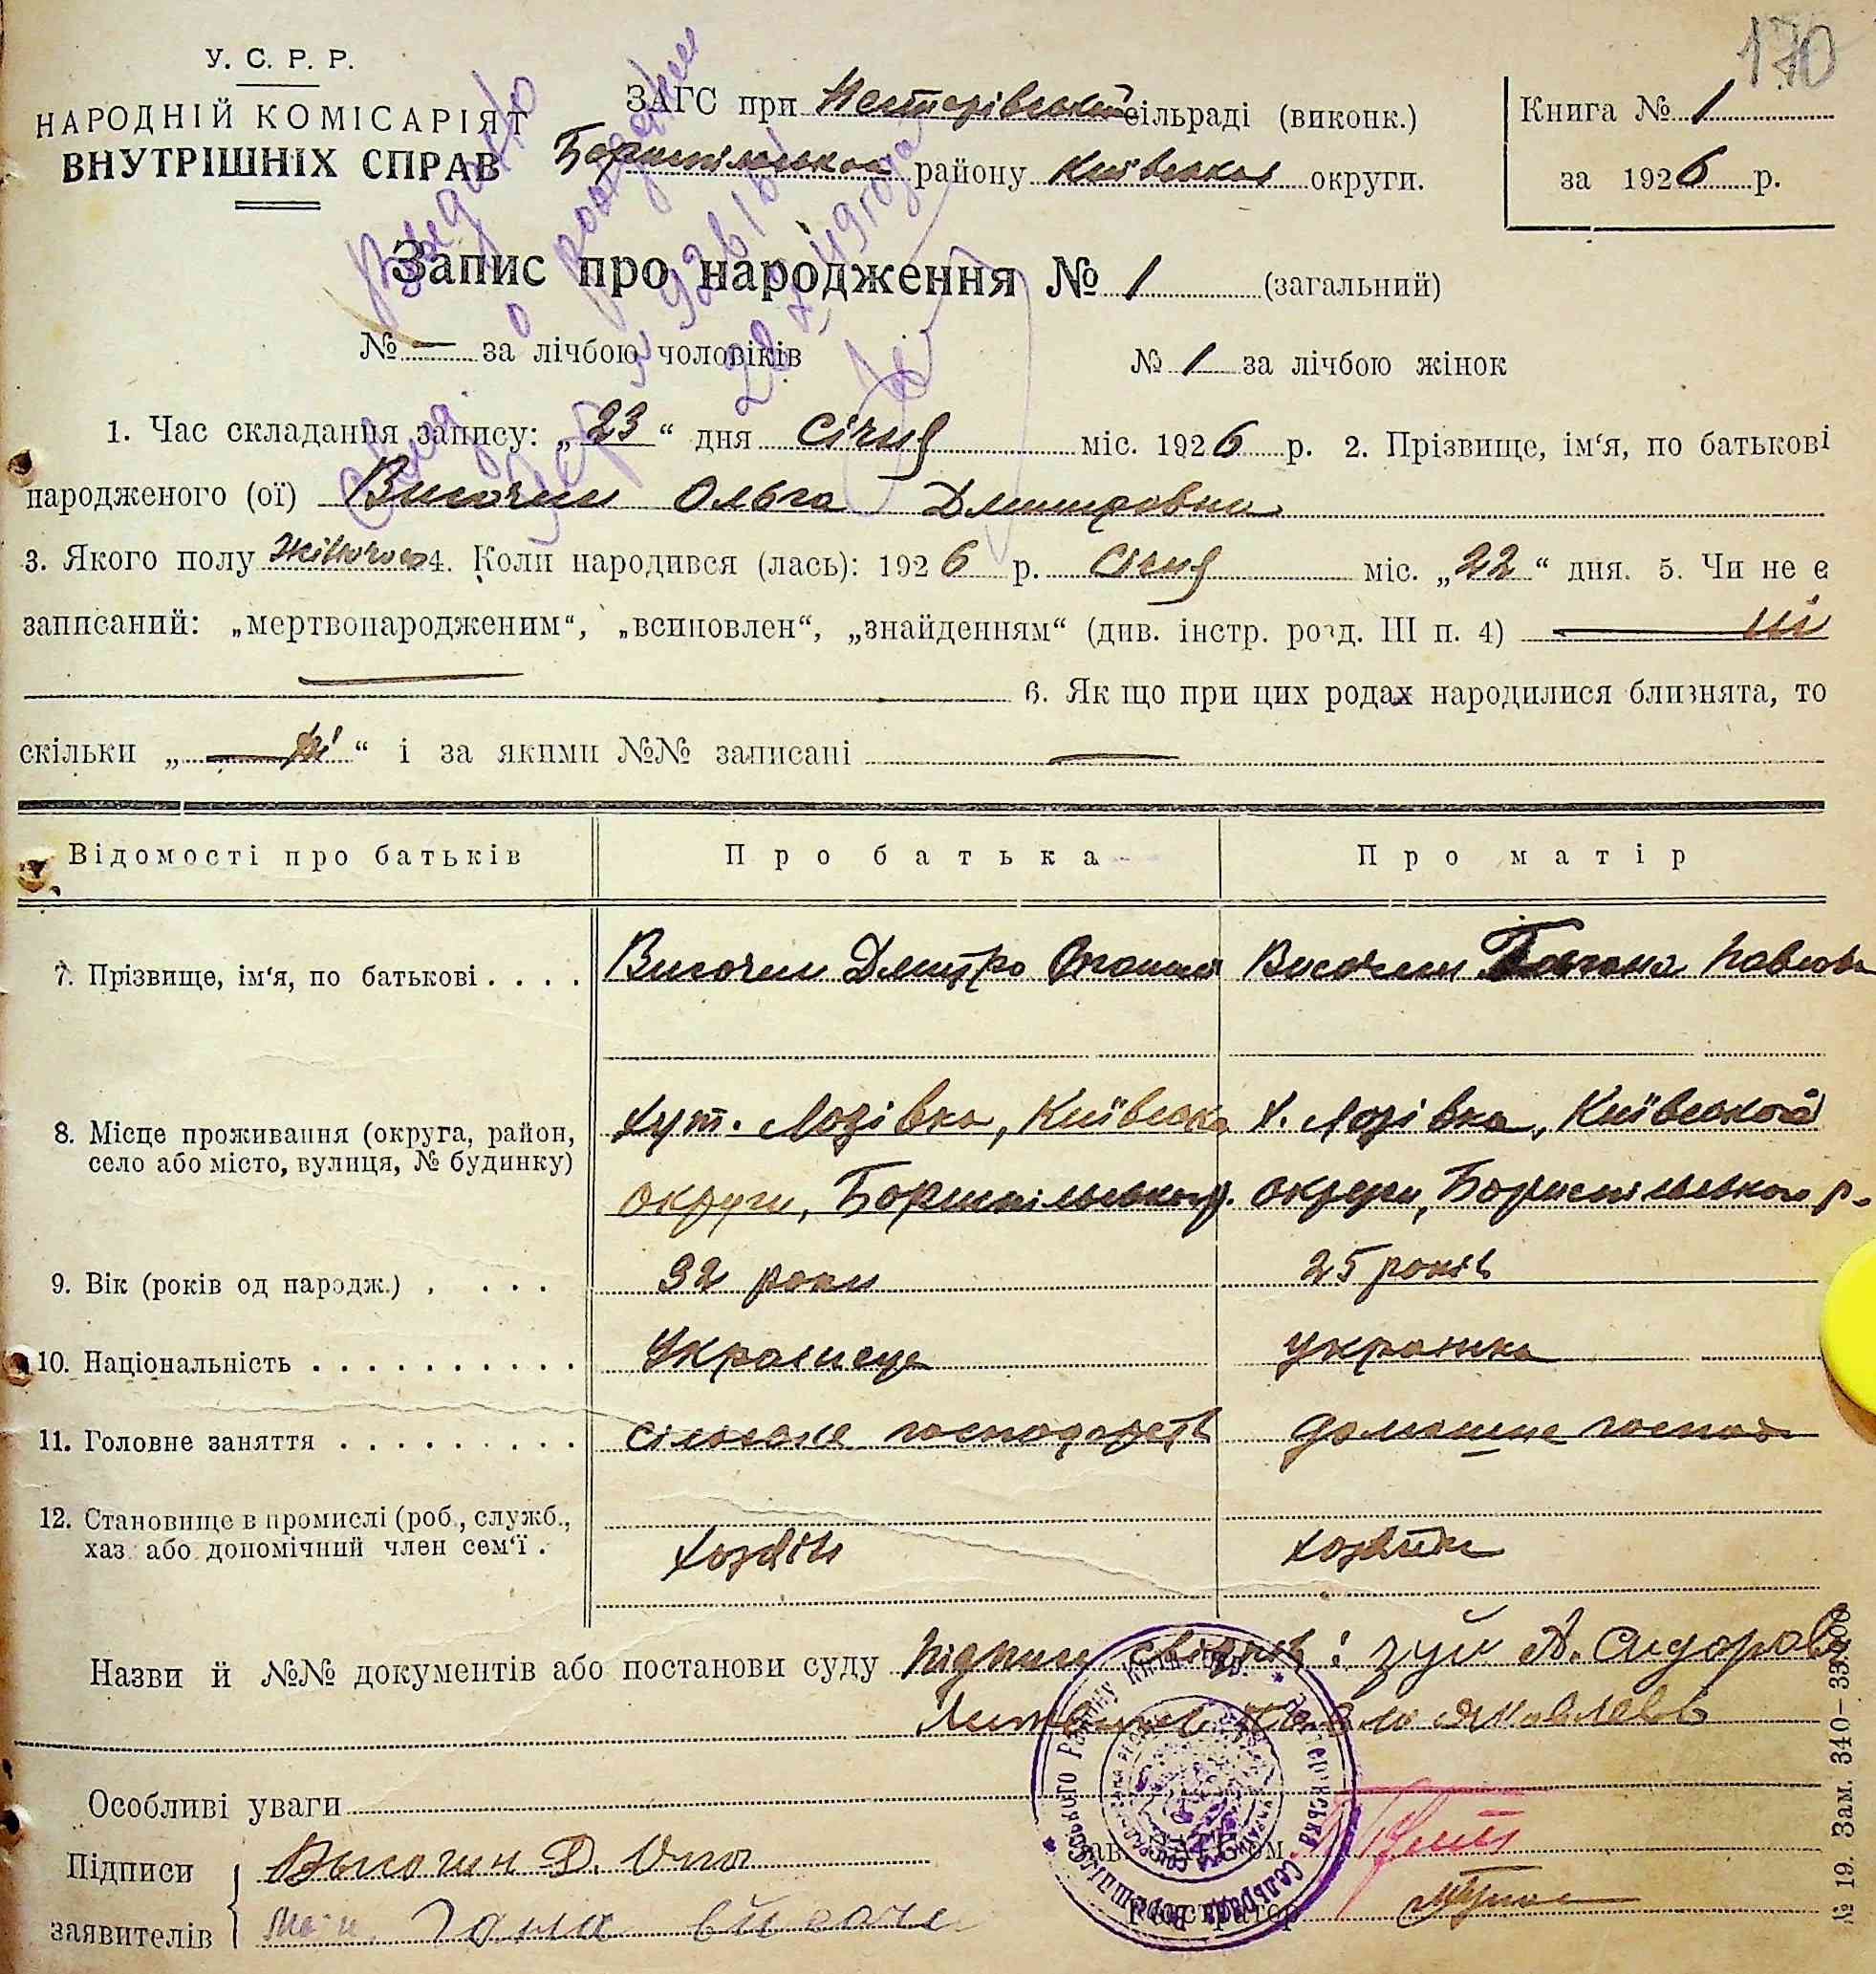 170
У. С. Р. Р.
НАРОДНІЙ КОМІСАРІЯТ
ВНУТРІШНІХ СПРАВ
ЗАГС при Нестерівській сільраді (виконк.)
Бориспільського району Київської округи.
Книга № 1
за 1926 р.
Запис про народження № 1 (загальний)
№ — за лічбою чоловіків
№ 1 за лічбою жінок
1. Час складання запису: „23“ дня Січня міс. 1926 р. 2. Прізвище, ім‘я, по батькові
народженого (ої) Височин Ольга Дмитровна
3. Якого полу жіночого 4. Коли народився (лась): 1926 р. Січня міс. „22“ дня. 5. Чи не є
записаний: „мертвонародженим“, „всиновлен“, „знайденням“ (див. інстр. розд. III п. 4) — ні
6. Як що при цих родах народилися близнята, то
скільки „— ні“ і за якими №№ записані —
Відомості про батьків
Про батька
Про матір
7. Прізвище, ім‘я, по батькові . . . .
Височин Дмитро
Височин Павлов
8. Місце проживання (округа, район,
село або місто, вулиця, № будинку)
хут. Лозівка, Київська
округи, Бориспільського р.
х. Лозівка, Київськой
округи, Бориспільського р-
9. Вік (років од народж.) . . . .
32 роки
25 років
10. Національність . . . . . . . . . .
Українець
українка
11. Головне заняття . . . . . . . . .
сільське господарств
домашнє господ
12. Становище в промислі (роб., служб.,
хаз. або допомічний член сем‘ї .
хозяїн
хозяйка
Назви й №№ документів або постанови суду Підписи свідків: Зуй А. Сидоров
Яковлев
Особливі уваги
Підписи
заявителів
Высочин Д.
Зав. ЗАГС‘ом
Реєстратор
№ 19. Зам. 340—33.000